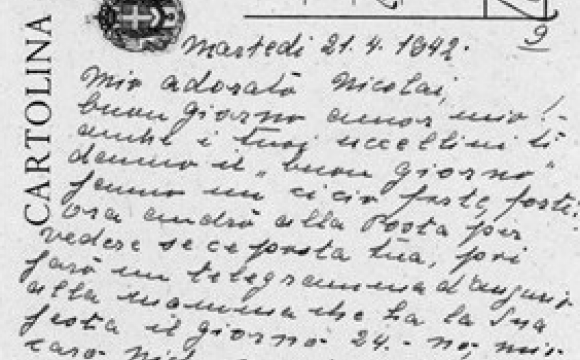 CARTOLINA
9
Martedi 21.4.1942.
Mio adorato Nicolai,
buon giorno amor mio! -
anche i tuoi uccellini ti
danno il "buon giorno"
fanno un ci cio forte, forte!
Ora andrò alla Posta per
vedere se ce posta tua, poi
farò un telegramma d'auguri
alla mamma che ha la Sua
festa il giorno 24. - no, mio
caro